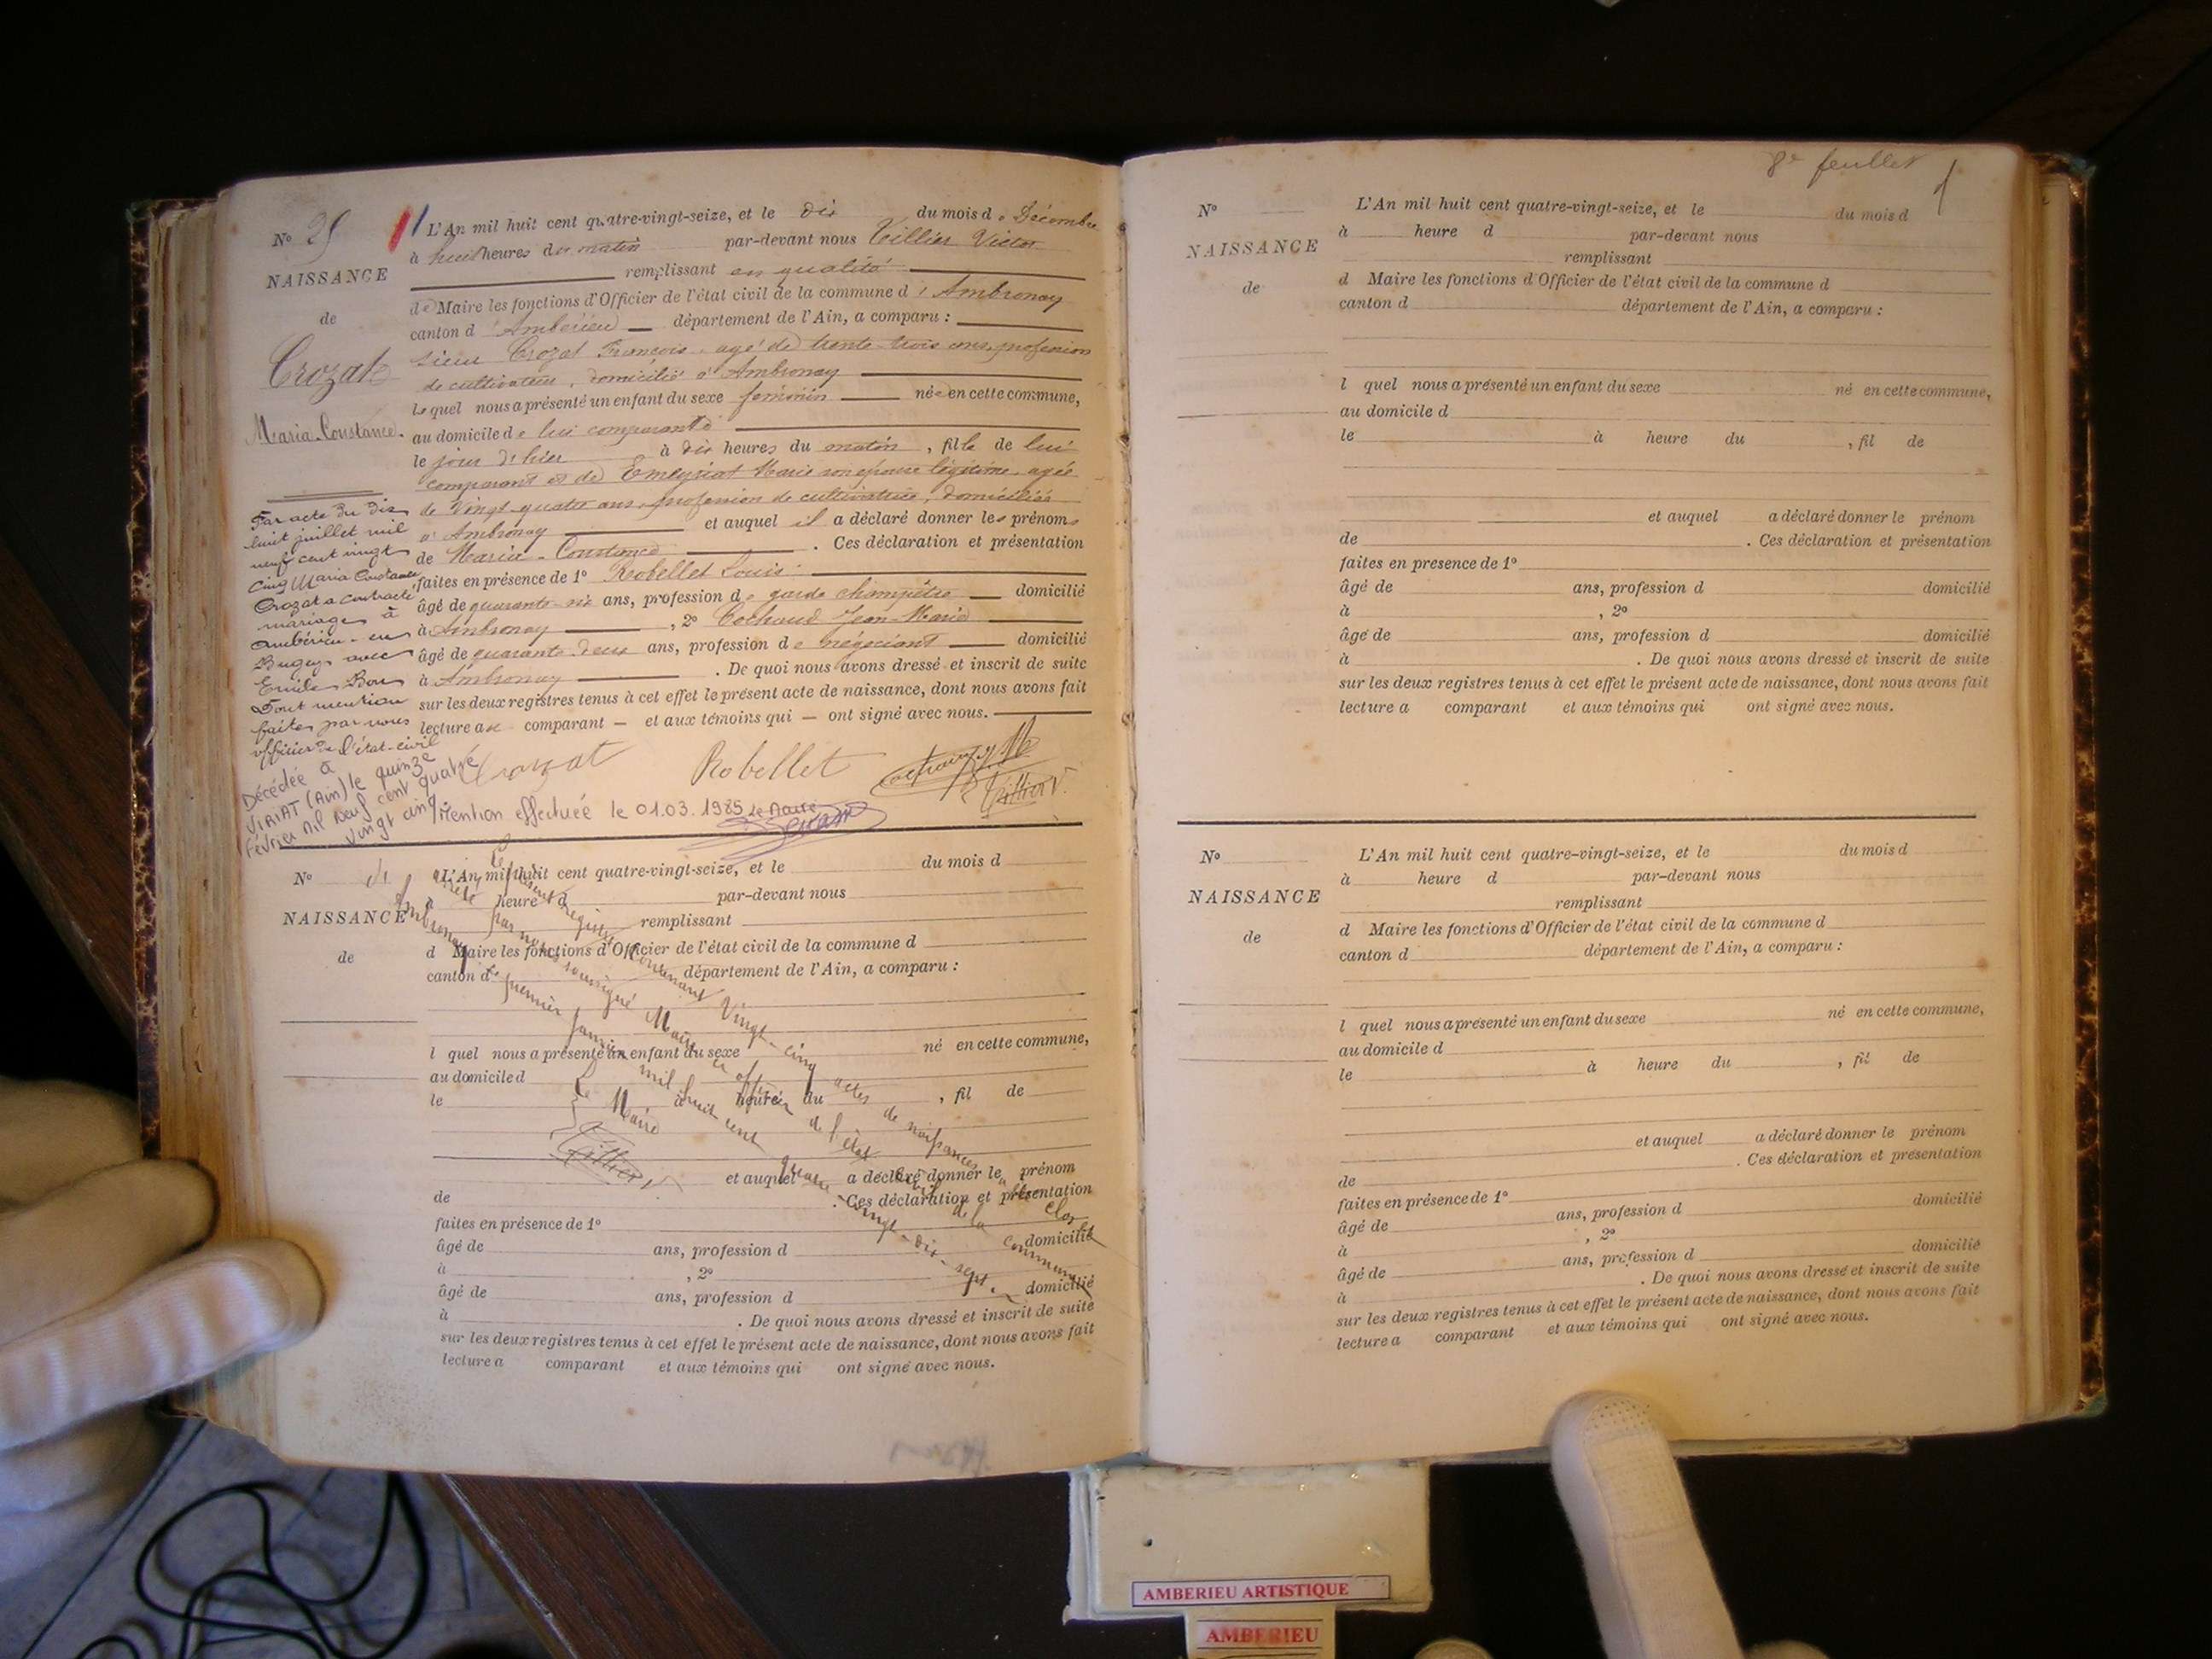 Nº 25
NAISSANCE
de
Crozat
Maria-Constance.
L'An mil huit cent quatre-vingt-seize, et le dix du mois de Décembre
à huit heures du matin par-devant nous Tillier Victor
remplissant en qualité
de Maire les fonctions d'Officier de l'état civil de la commune d'Ambronay
canton d'Ambérieu département de l'Ain, a comparu :
sieur Crozat François, agé de trente-trois ans, profession
de cultivateur, domicilié à Ambronay
Lequel nous a présenté un enfant du sexe féminin née en cette commune,
au domicile de lui comparant
le jour d'hier à dix heures du matin, fille de lui
comparant et de Emeyriat Marie son épouse légitime, agée
de Vingt-quatre ans, profession de cultivatrice, domiciliés
à Ambronay et auquel il a déclaré donner les prénoms
de Maria-Constance. Ces déclaration et présentation
faites en présence de 1º Robellet Louis
âgé de quarante-six ans, profession de garde champêtre domicilié
à Ambronay, 2º Cochaud Jean-Marie
âgé de quarante-deux ans, profession de négociant domicilié
à Ambronay. De quoi nous avons dressé et inscrit de suite
sur les deux registres tenus à cet effet le présent acte de naissance, dont nous avons fait
lecture au comparant et aux témoins qui ont signé avec nous.
Crozat Robellet
Tillier V.
Par acte du dix
huit juillet mil
neuf cent vingt
cinq Maria Constance
Crozat a contracté
mariage à
Ambérieu-en
Bugey avec
Emile Bon
Dont mention
faite par nous
officier de l'état-civil
Décédée à
VIRIAT (Ain) le quinze
février mil neuf cent quatre
vingt cinq.
Mention effectuée le 01.03.1985 Le Maire
Nº
NAISSANCE
de
L'An mil huit cent quatre-vingt-seize, et le du mois d
à heure d par-devant nous
remplissant
d Maire les fonctions d'Officier de l'état civil de la commune d
canton d département de l'Ain, a comparu :
l quel nous a présenté un enfant du sexe né en cette commune,
au domicile d
le à heure du , fil de
et auquel a déclaré donner le prénom
de . Ces déclaration et présentation
faites en présence de 1º
âgé de ans, profession d domicilié
à , 2º
âgé de ans, profession d domicilié
à . De quoi nous avons dressé et inscrit de suite
sur les deux registres tenus à cet effet le présent acte de naissance, dont nous avons fait
lecture a comparant et aux témoins qui ont signé avec nous.
Le présent registre contenant Vingt-cinq actes de naissances a été clos
et arrêté par nous soussigné Maire et officier de l'état civil de la commune
d'Ambronay le premier janvier mil huit cent quatre-vingt-dix-sept.
Le Maire
Tillier V
8e feuillet
Nº
NAISSANCE
de
L'An mil huit cent quatre-vingt-seize, et le du mois d
à heure d par-devant nous
remplissant
d Maire les fonctions d'Officier de l'état civil de la commune d
canton d département de l'Ain, a comparu :
l quel nous a présenté un enfant du sexe né en cette commune,
au domicile d
le à heure du , fil de
et auquel a déclaré donner le prénom
de . Ces déclaration et présentation
faites en presence de 1º
âgé de ans, profession d domicilié
à , 2º
âgé de ans, profession d domicilié
à . De quoi nous avons dressé et inscrit de suite
sur les deux registres tenus à cet effet le présent acte de naissance, dont nous avons fait
lecture a comparant et aux témoins qui ont signé avec nous.
Nº
NAISSANCE
de
L'An mil huit cent quatre-vingt-seize, et le du mois d
à heure d par-devant nous
remplissant
d Maire les fonctions d'Officier de l'état civil de la commune d
canton d département de l'Ain, a comparu :
l quel nous a présenté un enfant du sexe né en cette commune,
au domicile d
le à heure du , fil de
et auquel a déclaré donner le prénom
de . Ces déclaration et présentation
faites en présence de 1º
âgé de ans, profession d domicilié
à , 2º
âgé de ans, profession d domicilié
à . De quoi nous avons dressé et inscrit de suite
sur les deux registres tenus à cet effet le présent acte de naissance, dont nous avons fait
lecture a comparant et aux témoins qui ont signé avec nous.
AMBERIEU ARTISTIQUE
AMBERIEU